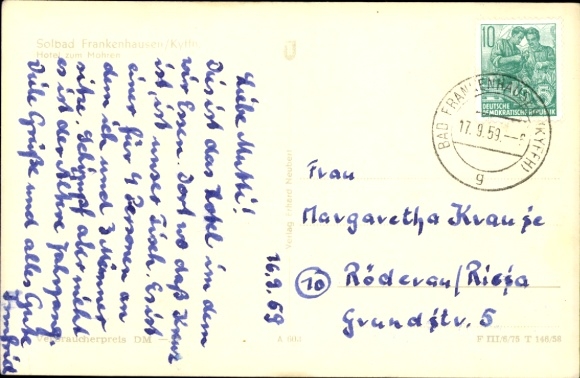 Solbad Frankenhausen/Kyffh.
Hotel zum Mohren
Liebe Mutti!
Dies ist das Hotel in dem
wir Essen. Dort wo daß Kreuz
ist, ist unser Tisch. Es ist
einer für 4 Personen an
dem ich und 3 Männer
sitze. Geschimpft aber nicht
es ist der Jahrgang.
Viele Grüße und alles Gute
16.9.59
Verlag Erhard Neubert
Verbraucherpreis DM
A 003
10
DEUTSCHE
DEMOKRATISCHE REPUBLIK
BAD FRANKENHAUSEN (KYFFH)
17.9.59.
g
Frau
Margaretha Krauße
10 Röderau/Riesa
Grundstr. 5
F III/6/75 T 146/58